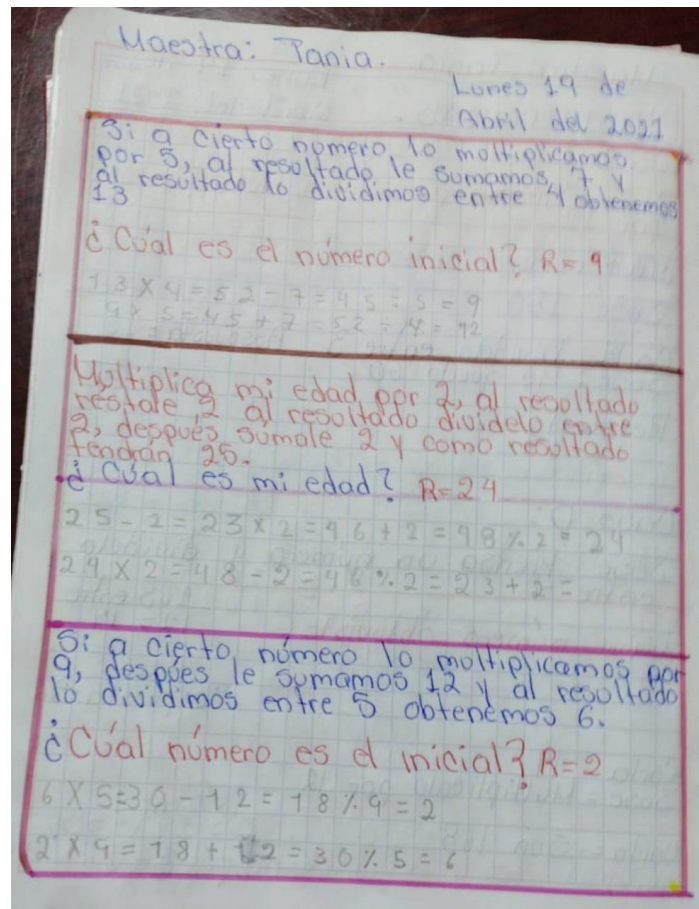 Maestra: Tania.
Lunes 19 de
Abril del 2021
Si a cierto número lo moltiplicamos
por 5, al resoltado le sumamos 7 y
al resultado lo dividimos entre 4 obtenemos
13
¿Cúal es el número inicial? R= 9
13 x 4 = 52 - 7 = 45 ÷ 5 = 9
9 x 5 = 45 + 7 = 52 ÷ 4 = 12
Moltiplica mi edad por 2, al resoltado
restale 2 al resoltado dividelo entre
2, después sumale 2 y como resoltado
tendrán 25.
¿Cúal es mi edad? R=24
25 - 2 = 23 x 2 = 46 + 2 = 48 % 2 = 24
24 x 2 = 48 - 2 = 46 % 2 = 23 + 2 =
Si a cierto número lo moltiplicamos por
9, despúes le sumamos 12 y al resoltado
lo dividimos entre 5 obtenemos 6.
¿Cúal número es el inicial? R=2
6 X 5=30 - 12 = 18 % 9 = 2
2 x 9 = 18 + 12 = 30 % 5 = 6